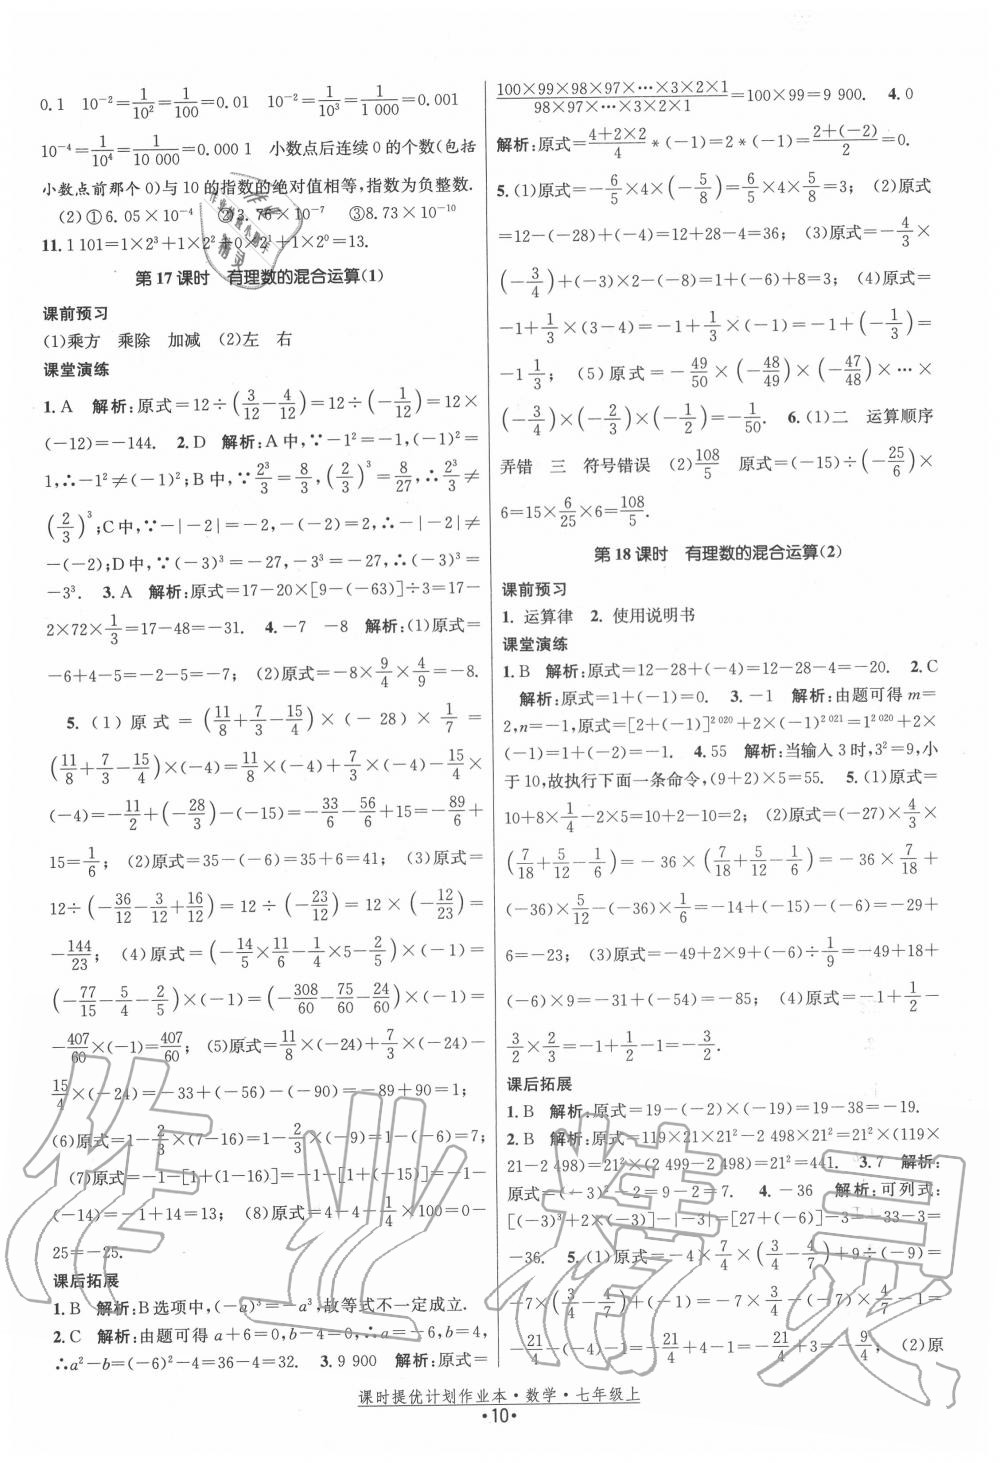 0.1 10⁻²=1/10²=1/100=0.01 10⁻²=1/10³=1/1 000=0.001
10⁻⁴=1/10⁴=1/10 000=0.000 1 小数点后连续 0 的个数(包括
小数点前那个 0)与 10 的指数的绝对值相等,指数为负整数.
(2)①6.05×10⁻⁴ ②3.76×10⁻⁷ ③8.73×10⁻¹⁰
11. 1 101=1×2³+1×2²+0×2¹+1×2⁰=13.
第 17 课时 有理数的混合运算(1)
课前预习
(1)乘方 乘除 加减 (2)左 右
课堂演练
1. A 解析:原式=12÷(3/12−4/12)=12÷(−1/12)=12×
(−12)=−144. 2. D 解析:A 中,∵−1²=−1,(−1)²=
1,∴−1²≠(−1)²;B 中,∵2³/3=8/3,(2/3)³=8/27,∴2³/3≠
(2/3)³;C 中,∵−|−2|=−2,−(−2)=2,∴−|−2|≠
−(−2);D 中,∵(−3)³=−27,−3³=−27,∴(−3)³=
−3³. 3. A 解析:原式=17−20×[9−(−63)]÷3=17−
2×72×1/3=17−48=−31. 4. −7 −8 解析:(1)原式=
−6+4−5=−2−5=−7; (2)原式=−8×9/4×4/9=−8.
5. (1)原式=(11/8+7/3−15/4)×(−28)×1/7=
(11/8+7/3−15/4)×(−4)=11/8×(−4)+7/3×(−4)−15/4×
(−4)=−11/2+(−28/3)−(−15)=−33/6−56/6+15=−89/6+
15=1/6; (2)原式=35−(−6)=35+6=41; (3)原式=
12÷(−36/12−3/12+16/12)=12÷(−23/12)=12×(−12/23)=
−144/23; (4)原式=(−14/5×11/6−1/4×5−2/5)×(−1)=
(−77/15−5/4−2/5)×(−1)=(−308/60−75/60−24/60)×(−1)=
−407/60×(−1)=407/60; (5)原式=11/8×(−24)+7/3×(−24)−
15/4×(−24)=−33+(−56)−(−90)=−89+90=1;
(6)原式=1−2/3×(7−16)=1−2/3×(−9)=1−(−6)=7;
(7)原式=−1−[1+(1−16)]=−1−[1+(−15)]=−1−
(−14)=−1+14=13; (8)原式=4−4−1/4×100=0−
25=−25.
课后拓展
1. B 解析:B 选项中,(−a)³=−a³,故等式不一定成立.
2. C 解析:由题可得 a+6=0,b−4=0,∴a=−6,b=4,
∴a²−b=(−6)²−4=36−4=32. 3. 9 900 解析:原式=
100×99×98×97×…×3×2×1/98×97×…×3×2×1=100×99=9 900. 4. 0
解析:原式=4+2×2/4*(−1)=2*(−1)=2+(−2)/2=0.
5. (1)原式=−6/5×4×(−5/8)=6/5×4×5/8=3; (2)原式
=12−(−28)+(−4)=12+28−4=36; (3)原式=−4/3×
(−3/4)+(−3)×(−8)÷3=1+24÷3=1+8=9; (4)原式=
−1+1/3×(3−4)=−1+1/3×(−1)=−1+(−1/3)=
−1 1/3; (5)原式=−49/50×(−48/49)×(−47/48)×…×
(−3/4)×(−2/3)×(−1/2)=−1/50. 6. (1)二 运算顺序
弄错 三 符号错误 (2)108/5 原式=(−15)÷(−25/6)×
6=15×6/25×6=108/5.
第 18 课时 有理数的混合运算(2)
课前预习
1. 运算律 2. 使用说明书
课堂演练
1. B 解析:原式=12−28+(−4)=12−28−4=−20. 2. C
解析:原式=1+(−1)=0. 3. −1 解析:由题可得 m=
2,n=−1,原式=[2+(−1)]²⁰²⁰+2×(−1)²⁰²¹=1²⁰²⁰+2×
(−1)=1+(−2)=−1. 4. 55 解析:当输入 3 时,3²=9,小
于 10,故执行下面一条命令,(9+2)×5=55. 5. (1)原式=
10+8×1/4−2×5=10+2−10=2; (2)原式=(−27)×4/3×
(7/18+5/12−1/6)=−36×(7/18+5/12−1/6)=−36×7/18+
(−36)×5/12−(−36)×1/6=−14+(−15)−(−6)=−29+
6=−23; (3)原式=−49+2×9+(−6)÷1/9=−49+18+
(−6)×9=−31+(−54)=−85; (4)原式=−1+1/2−
3/2×2/3=−1+1/2−1=−3/2.
课后拓展
1. B 解析:原式=19−(−2)×(−19)=19−38=−19.
2. B 解析:原式=119×21×21²−2 498×21²=21²×(119×
21−2 498)=21²×(2 499−2 498)=21²=441. 3. 7 解析:
原式=(−3)²−2=9−2=7. 4. −36 解析:可列式:
[(−3)³+2×(−3)]−|−3|=[27+(−6)]−3=−33−3=
−36. 5. (1)原式=−4×7/4×(3/4−4/7)+9÷(−9)=
−7×(3/4−4/7)+(−1)=−7×3/4−(−7)×4/7−1=
−21/4−(−4)−1=−21/4+4−1=−9/4; (2)原
课时提优计划作业本·数学·七年级上
·10·
作业精灵